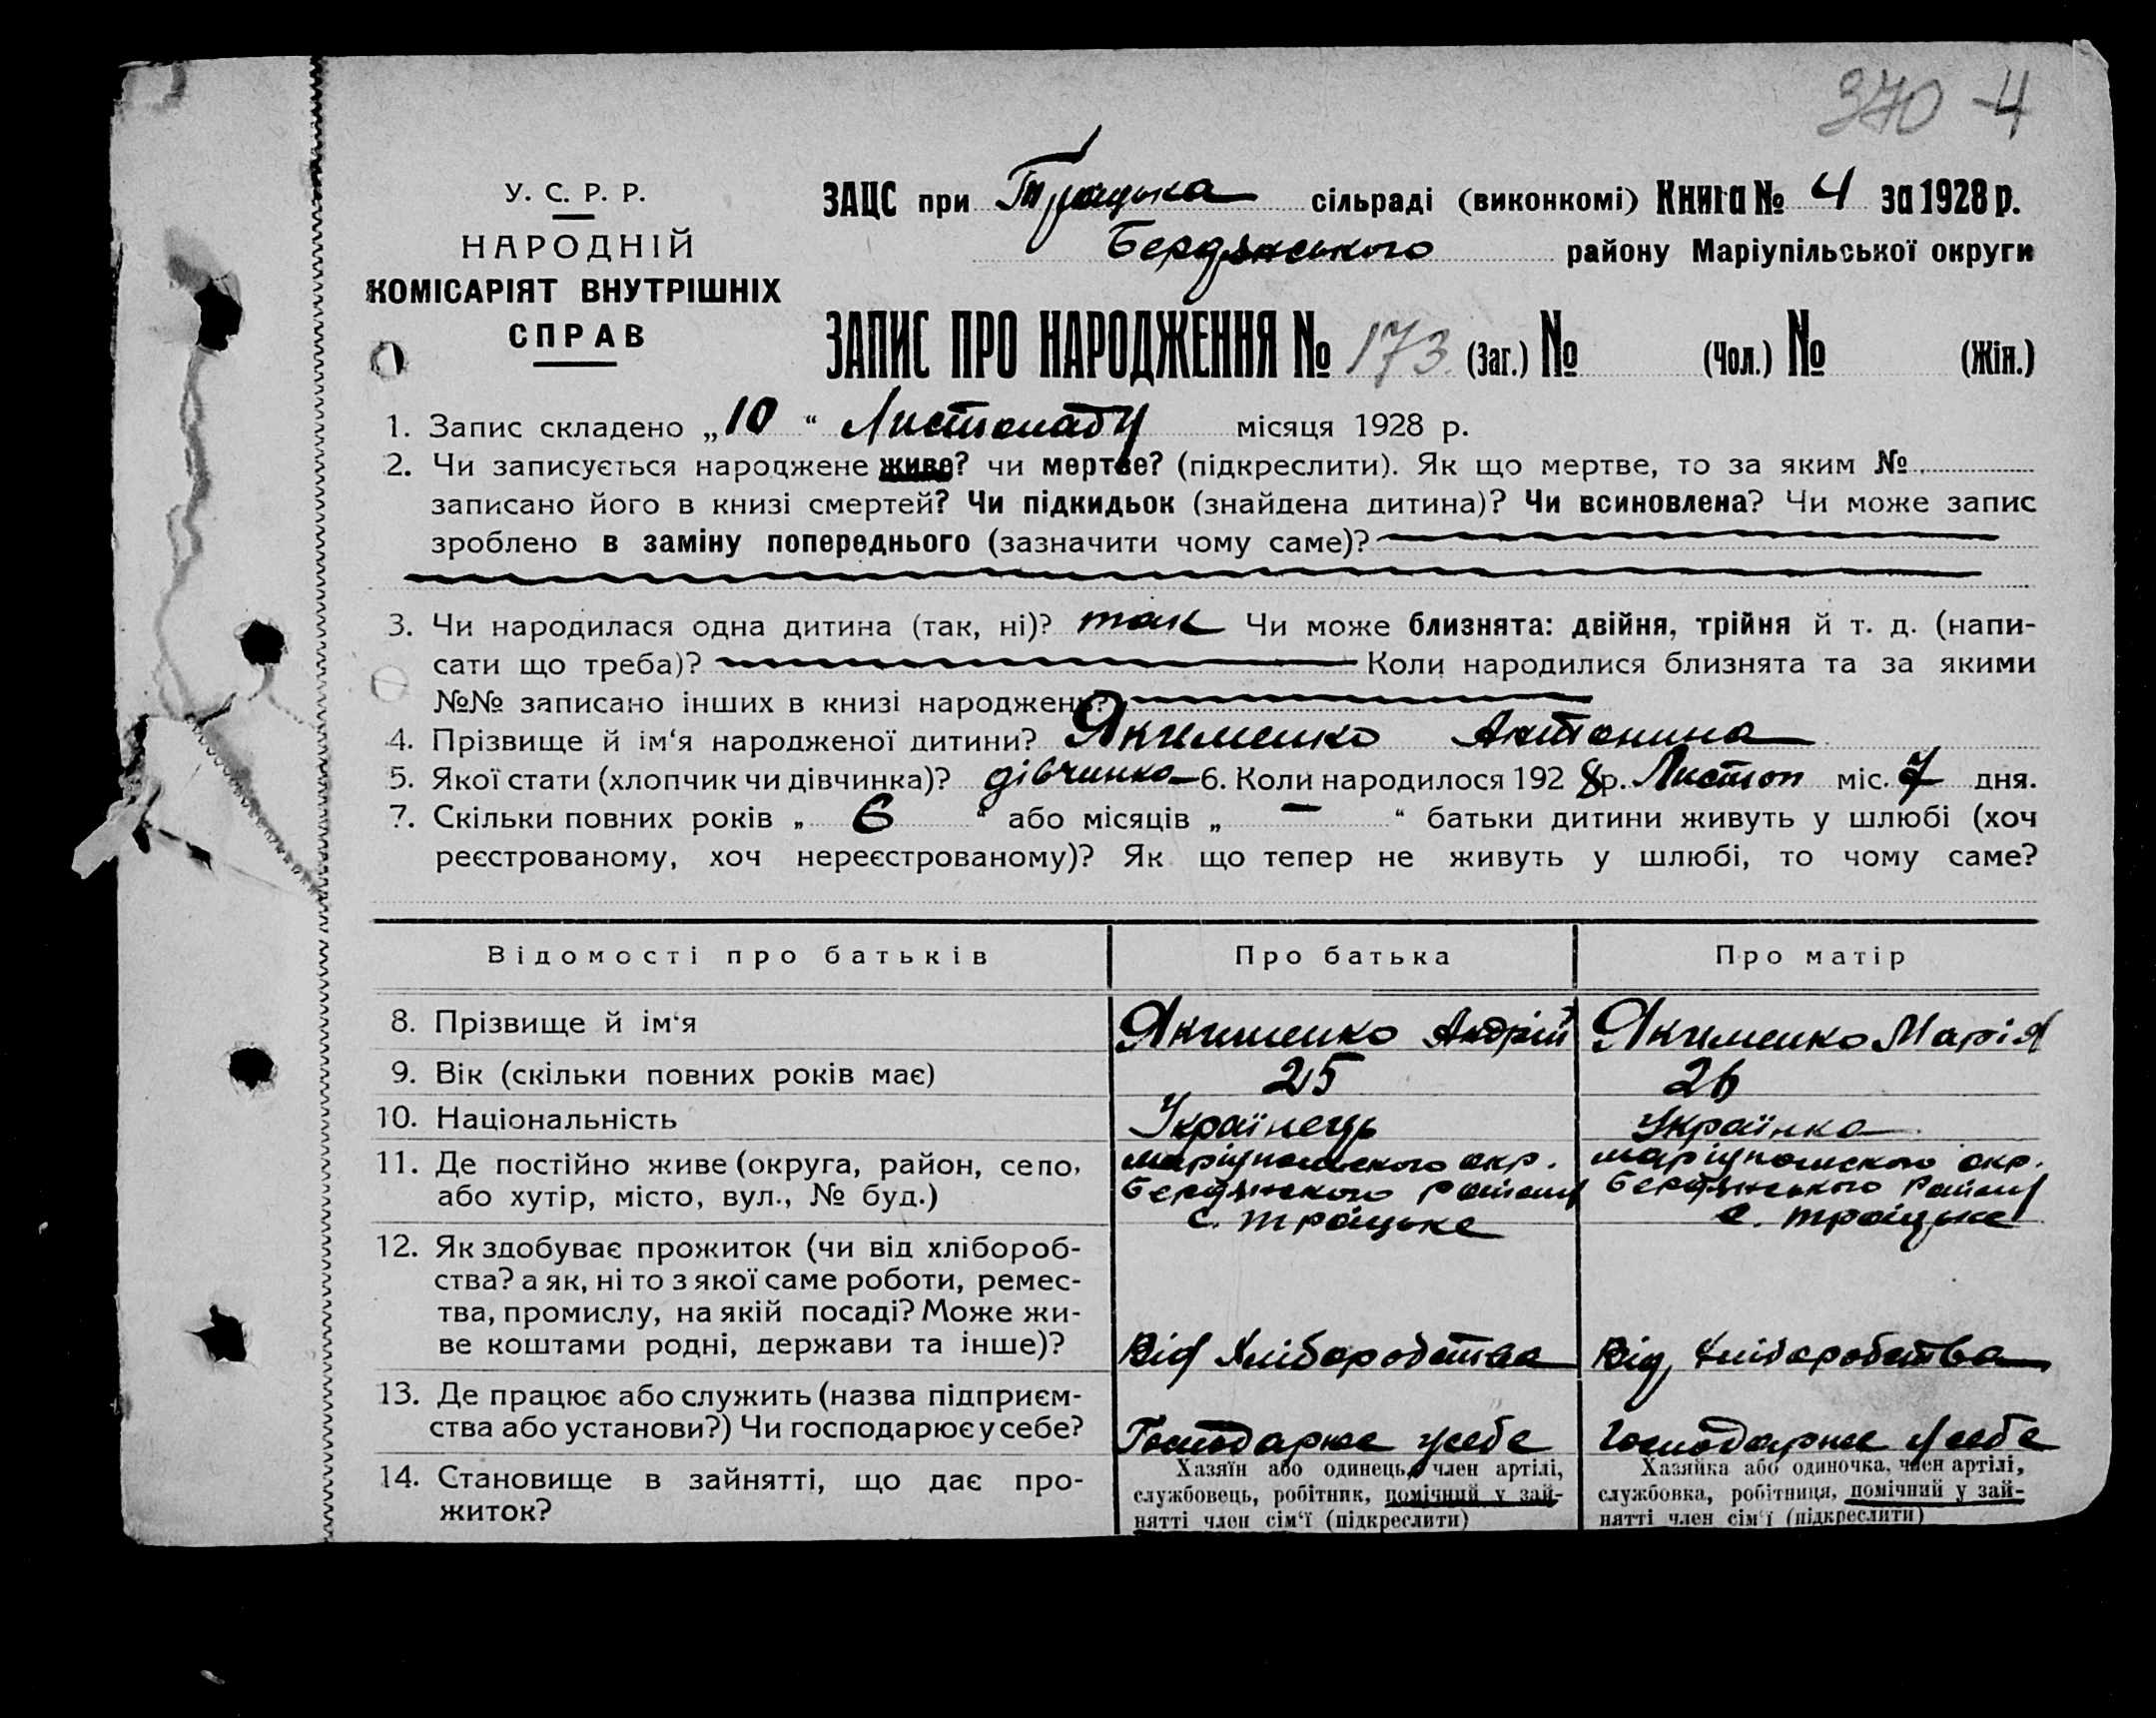 370 -4
У. С. Р. Р.
НАРОДНІЙ
КОМІСАРІЯТ ВНУТРІШНІХ
СПРАВ
ЗАЦС при Троїцька сільраді (виконкомі) Книга № 4 за 1928 р.
Бердянського району Маріупільської округи
ЗАПИС ПРО НАРОДЖЕННЯ № 173 (Заг.) № (Чол.) № (Жін.)
1. Запис складено „10“ Листопаду місяця 1928 р.
2. Чи записується народжене живе? чи мертве? (підкреслити). Як що мертве, то за яким №
записано його в книзі смертей? Чи підкидьок (знайдена дитина)? Чи всиновлена? Чи може запис
зроблено в заміну попереднього (зазначити чому саме)?
3. Чи народилася одна дитина (так, ні)? так Чи може близнята: двійня, трійня й т. д. (напи-
сати що треба)? Коли народилися близнята та за якими
№№ записано інших в книзі народжень?
4. Прізвище й ім‘я народженої дитини? Якименко Антонина
5. Якої стати (хлопчик чи дівчинка)? дівчинка 6. Коли народилося 1928 р. Листоп міс. 7 дня.
7. Скільки повних років „ 6 “ або місяців „ — “ батьки дитини живуть у шлюбі (хоч
реєстрованому, хоч нереєстрованому)? Як що тепер не живуть у шлюбі, то чому саме?
Відомості про батьків Про батька Про матір
8. Прізвище й ім‘я Якименко Андрій Якименко Марія
9. Вік (скільки повних років має) 25 26
10. Національність Українець Українка
11. Де постійно живе (округа, район, село, маріупольского окр. маріупольского окр.
або хутір, місто, вул., № буд.) Бердянского Району Бердянського Району
с. Троїцьке с. Троїцьке
12. Як здобуває прожиток (чи від хлібороб-
ства? а як, ні то з якої саме роботи, ремес-
тва, промислу, на якій посаді? Може жи-
ве коштами родні, держави та інше)? Від Хліборобства Від Хліборобства
13. Де працює або служить (назва підприєм-
ства або установи?) Чи господарює у себе? Господарює усебе Господарює усебе
14. Становище в зайнятті, що дає про-
житок?
Хазяїн або одинець, член артілі,
службовець, робітник, помічний у зай-
нятті член сім‘ї (підкреслити)
Хазяйка або одиночка, член артілі,
службовка, робітниця, помічний у зай-
нятті член сім‘ї (підкреслити)